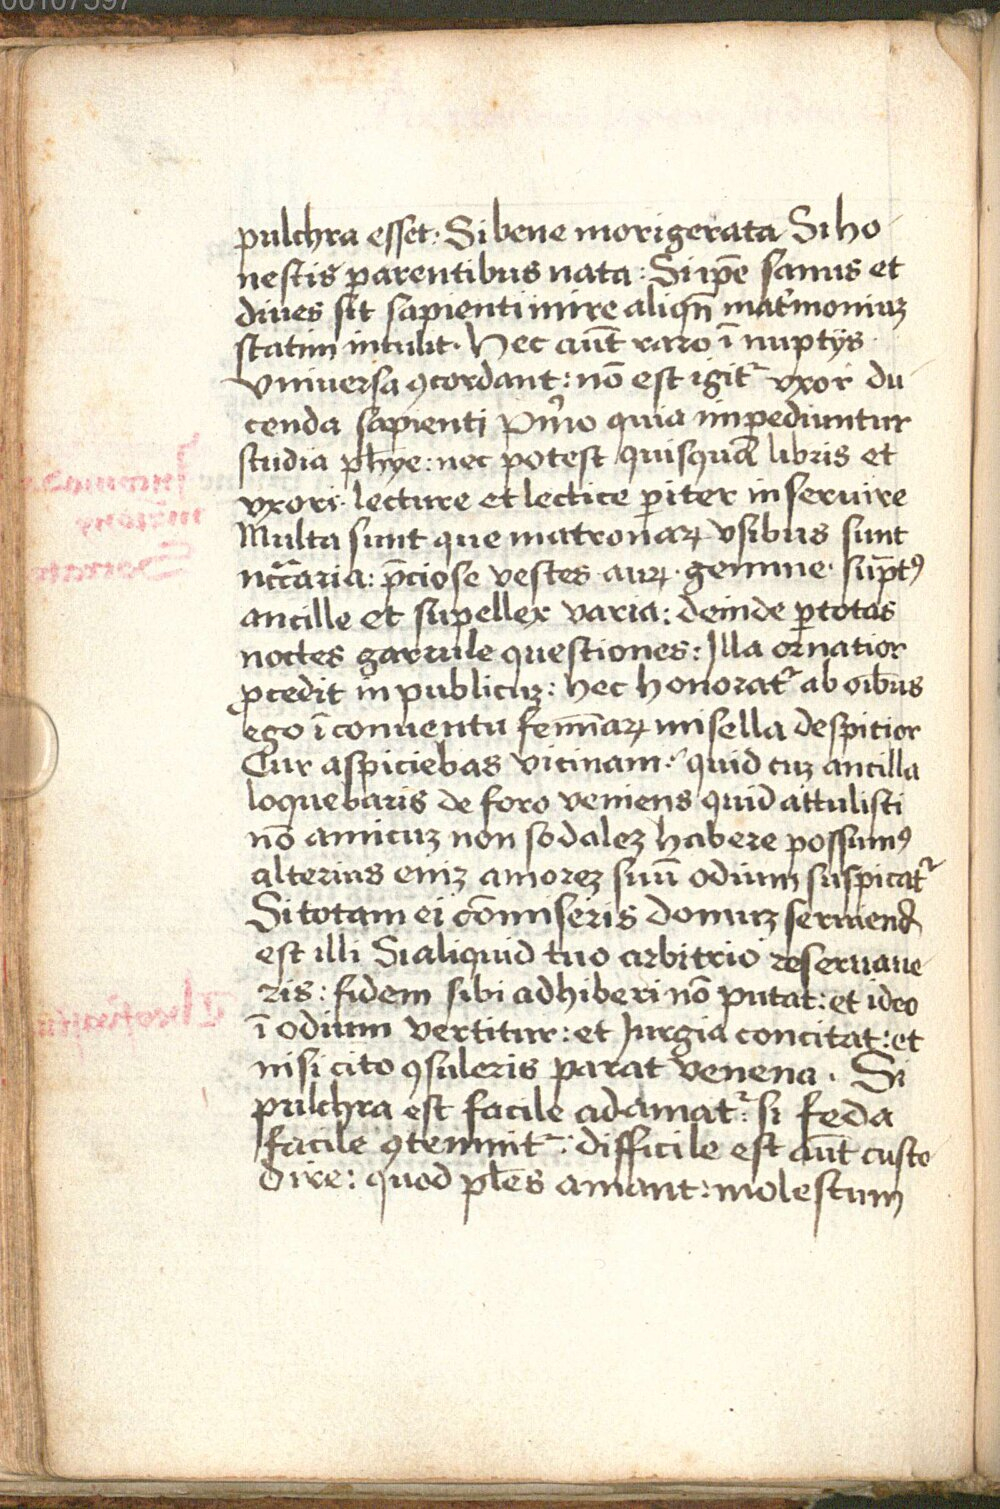 00107397
pulchra esset· Si bene morigerata Si ho
nestis parentibus nata: Si ip̄e sanus et
diues sit sapienti inire aliqn̄ mat̓moniuꝫ
statim intulit· Hec aūt raro ī nuptijs·
vniuersa ꝯcordant: nō est igit᷑ vxor du
cenda sapienti Pͥmo quia impediuntur
studia ph̄ye: nec potest quisquā libris et
vxori· lecture et lectice ꝑiter inseruire
Multa sunt que matronaꝝ vsibus sunt
nc̄c̄aria: p̄ciose vestes auꝝ· gemme· sūptꝰ
ancille et supellex varia: deinde ꝑ totas
noctes garrule questiones: Illa ornatior
ꝓcedit in publicuꝫ: hec honorat᷑ ab oībus
ego ī conuentu femīaꝝ misella despicior
Cur aspiciebas vicinam·′ quid cuꝫ ancilla
loquebaris de foro veniens quid attulisti
nō amicuꝫ non sodaleꝫ habere possumꝰ
alterius eniꝫ amoreꝫ suū odium suspicat᷑
Si totam ei cōmiseris domuꝫ seruiend̄
est illi Si aliquid tuo arbitrio reseruaue
ris: fidem sibi adhiberi nō putat: et ideo
ī odium vertitur: et Iurgia concitat: et
nisi cito ꝯsuleris parat venena · Si
pulchra est facile adamat᷑: si feda
facile ꝯtemnit᷑: difficile est aūt custo
dire: quod pl̄es amant: molestum